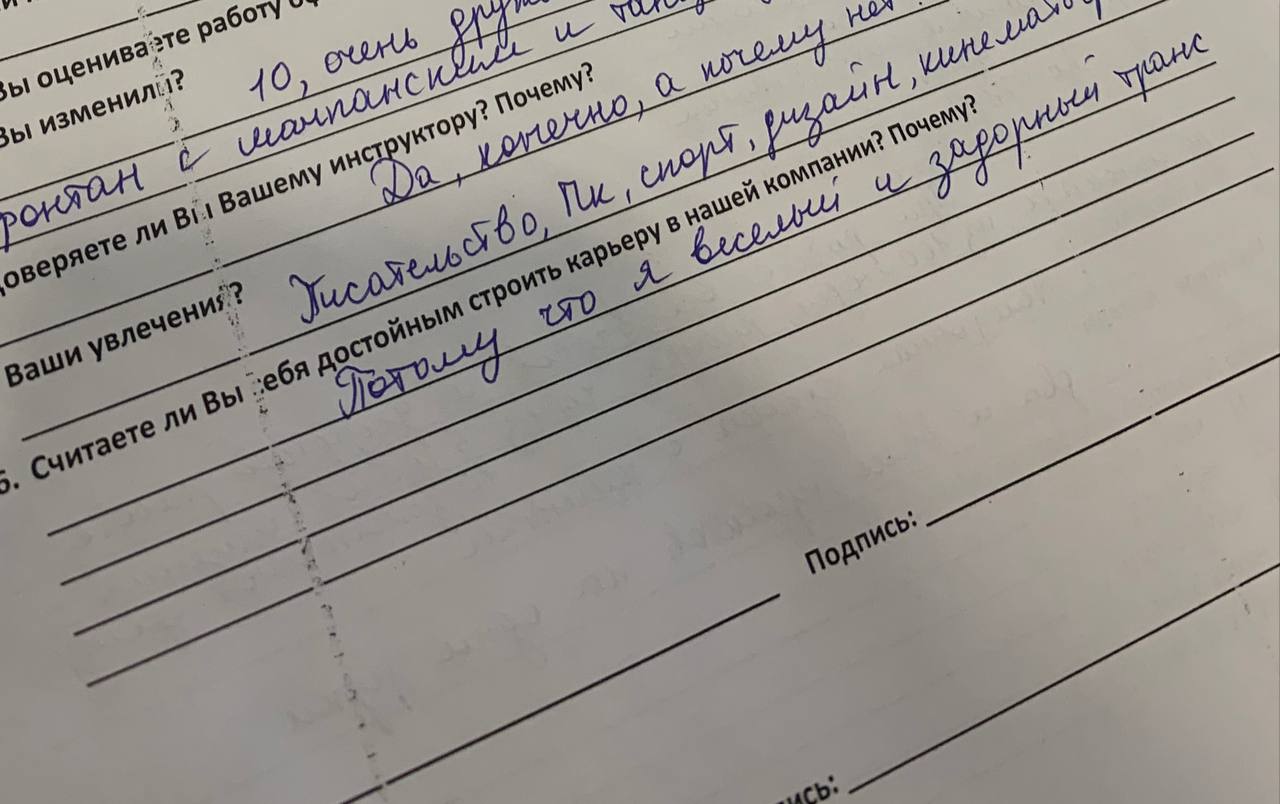 Вы оцениваете работу
Вы изменили? 10, очень
с шампанским и
Доверяете ли Вы Вашему инструктору? Почему?
Да, конечно, а почему нет
Ваши увлечения? Писательство, Пк, спорт, дизайн,
Считаете ли Вы себя достойным строить карьеру в нашей компании? Почему?
Потому что я веселый и задорный транс
Подпись: